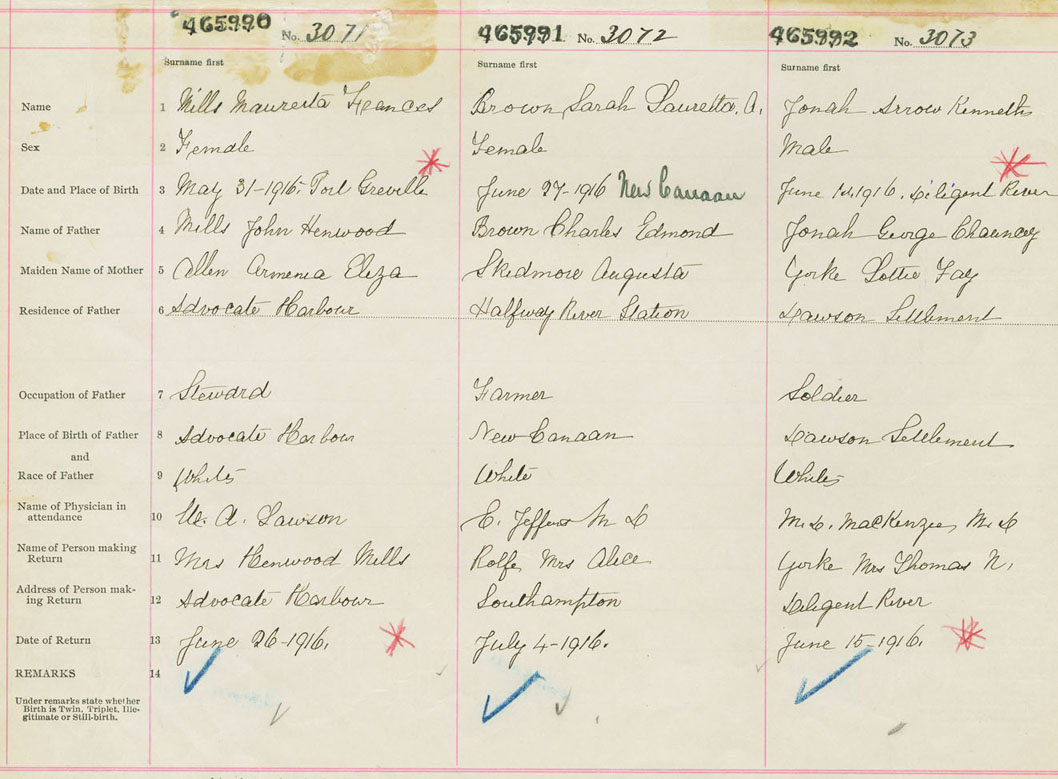 465990 No. 3071 465991 No. 3072 465992 No. 3073
Surname first Surname first Surname first
Name 1 Mills Mauresta Frances Brown, Sarah Lauretta. A. Jonah Arrow Kenneth
Sex 2 Female Female Male
Date and Place of Birth 3 May 31-1916, Port Greville June 27-1916 New Canaan June 1st, 1916. Diligent River
Name of Father 4 Mills John Henwood Brown Charles Edmond Jonah George Chauncey
Maiden Name of Mother 5 Allen Armenia Eliza Skidmore Augusta Yorke Lottie Fay
Residence of Father 6 Advocate Harbour Halfway River Station Dawson Settlement
Occupation of Father 7 Steward Farmer Soldier
Place of Birth of Father 8 Advocate Harbour New Canaan Dawson Settlement
and
Race of Father 9 White White White
Name of Physician in
attendance 10 W. A. Dawson E. Jeffers M D M. D. MacKenzie, M. D
Name of Person making
Return 11 Mrs Henwood Mills Rolfe, Mrs Alice Yorke Mrs Thomas N.
Address of Person mak-
ing Return 12 Advocate Harbour Southampton Diligent River
Date of Return 13 June 26-1916. July 4-1916. June 15-1916.
REMARKS 14
Under remarks state whether
Birth is Twin, Triplet, Ille-
gitimate or Still-birth.